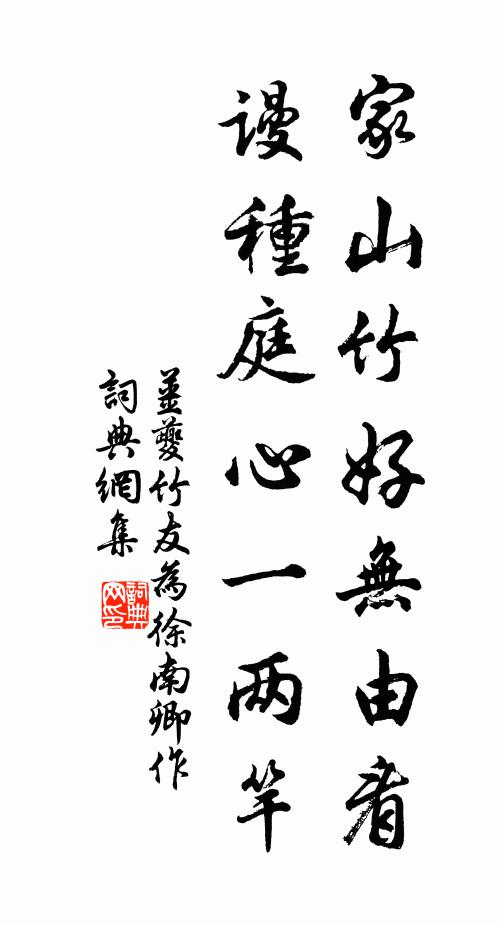 家山竹好無由看
謾種庭心一两竿
姜夔竹友為徐南卿作
詞典網集
詞典网印